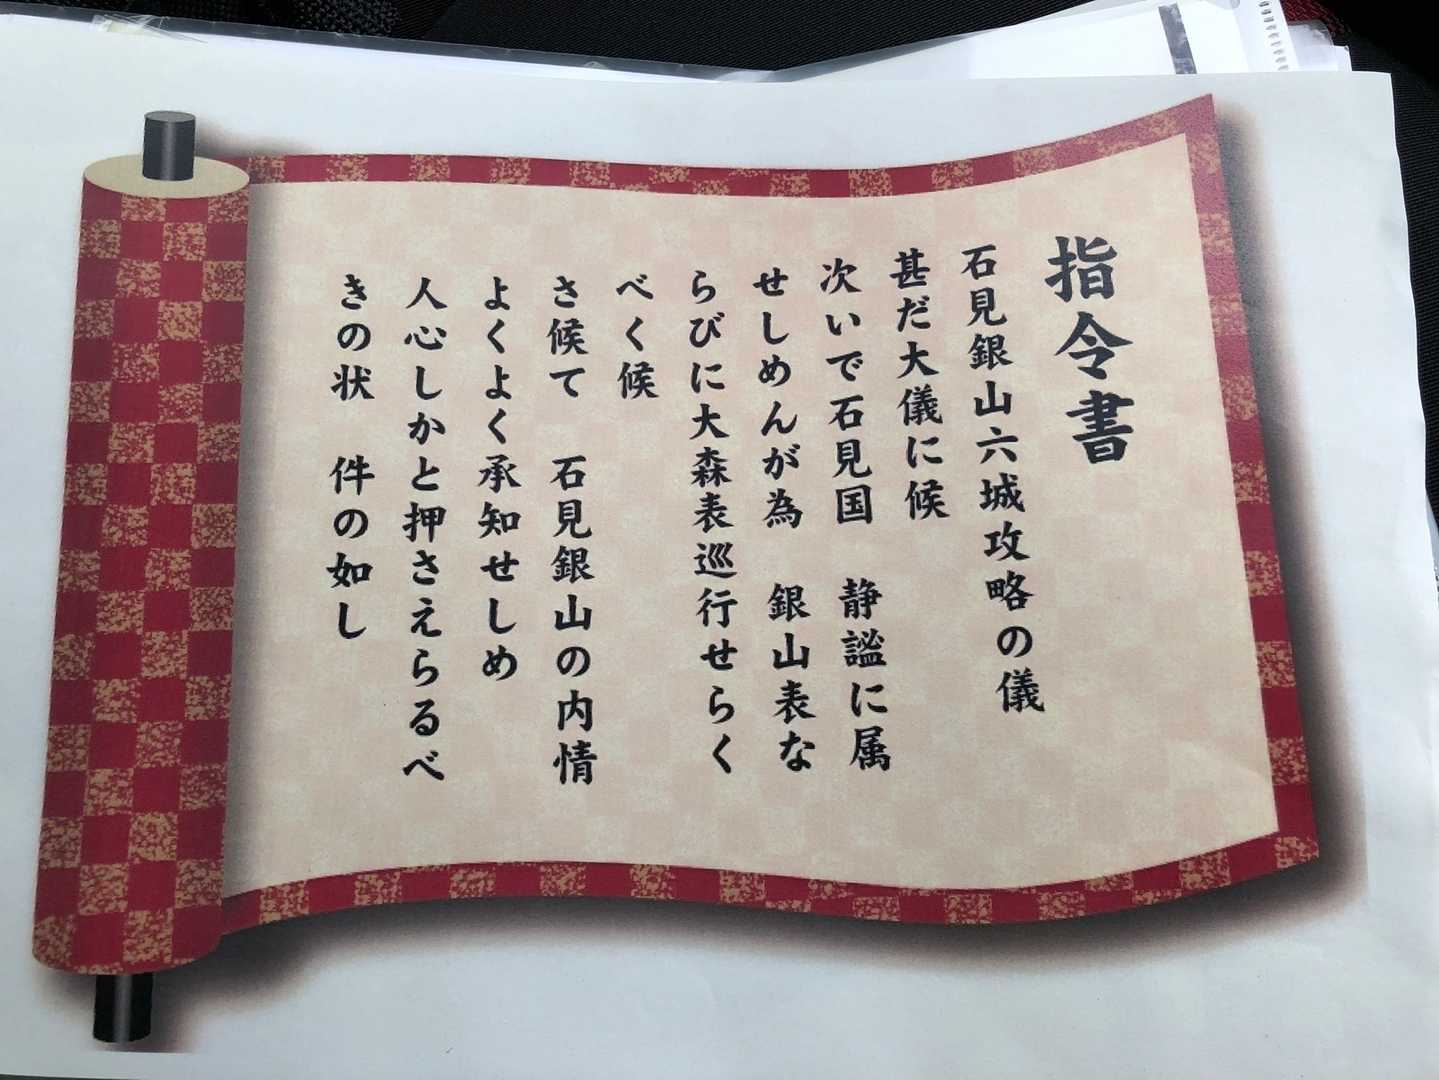 指令書
石見銀山六城攻略の儀
甚だ大儀に候
次いで石見国　静謐に属
せしめんが為　銀山表な
らびに大森表巡行せらく
べく候
さ候て　石見銀山の内情
よくよく承知せしめ
人心しかと押さえらるべ
きの状　件の如し